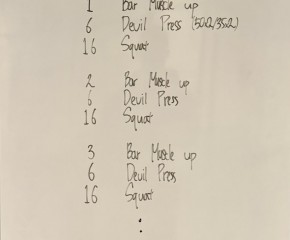 1 Bar Muscle up
6 Devil Press (50x2/35x2)
16 Squat
2 Bar Muscle up
6 Devil Press
16 Squat
3 Bar Muscle up
6 Devil Press
16 Squat
: